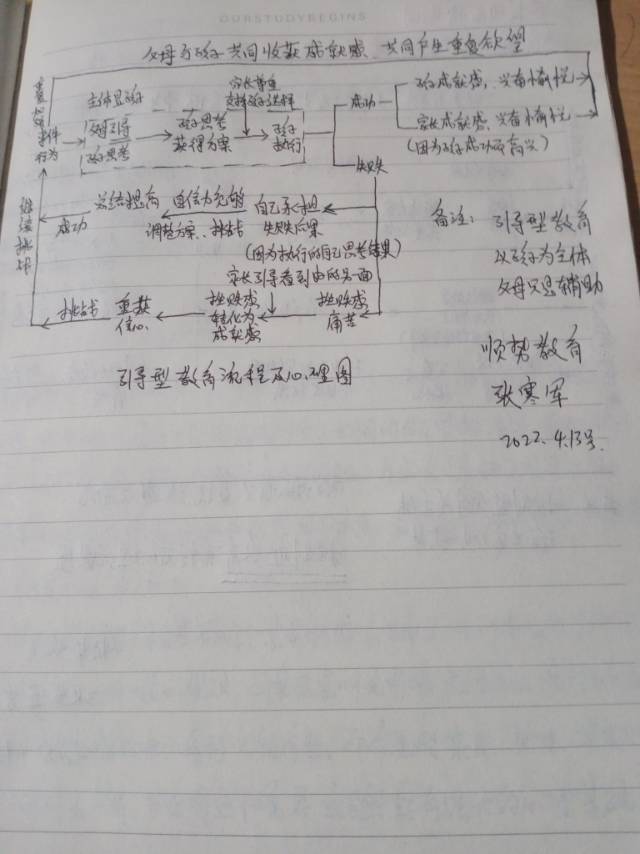 OURSTUDYBEGINS
父母与孩子共同收获成就感、共同产生重复欲望
重复
事件
行为
主体是孩子
父母引导
孩子思考
孩子思考
获得方案
家长尊重
支持孩子选择
孩子
执行
成功
孩子成就感，兴奋愉悦
家长成就感，兴奋愉悦
(因为孩子成功而高兴)
失败
继续挑战
成功
总结提高
自信力先够
调整方案、挑战
自己承担
失败后果
(因为执行的自己思考结果)
家长引导看到事的另一面
挑战
重获
信心
挫败感
转化为
成就感
挫败感
痛苦
备注：引导型教育
以孩子为主体
父母只是辅助
引导型教育流程及心理图
顺势教育
张寒军
2022.4.13号.